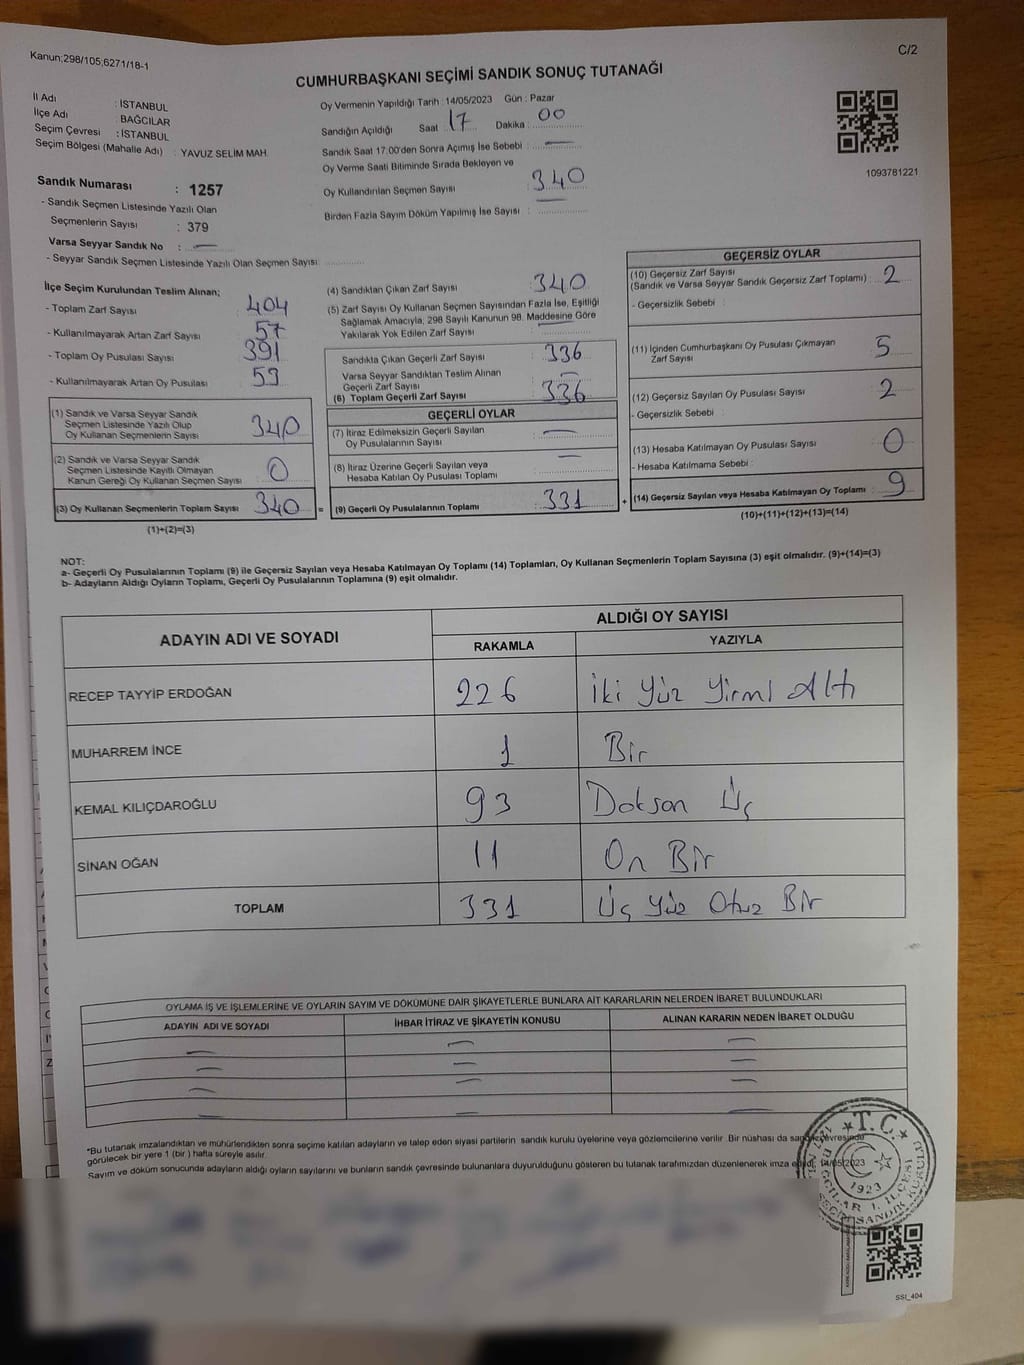 Kanun;298/105;6271/18-1
C/2
CUMHURBAŞKANI SEÇİMİ SANDIK SONUÇ TUTANAĞI
İl Adı : İSTANBUL
İlçe Adı : BAĞCILAR
Seçim Çevresi : İSTANBUL
Seçim Bölgesi (Mahalle Adı) : YAVUZ SELİM MAH.
Sandık Numarası : 1257
- Sandık Seçmen Listesinde Yazılı Olan
Seçmenlerin Sayısı : 379
Varsa Seyyar Sandık No : —
- Seyyar Sandık Seçmen Listesinde Yazılı Olan Seçmen Sayısı:
Oy Vermenin Yapıldığı Tarih : 14/05/2023 Gün : Pazar
Sandığın Açıldığı Saat 17 Dakika : 00
Sandık Saat 17:00'den Sonra Açımış İse Sebebi : —
Oy Verme Saati Bitiminde Sırada Bekleyen ve
Oy Kullandırılan Seçmen Sayısı : 340
Birden Fazla Sayım Döküm Yapılmış İse Sayısı : —
1093781221
İlçe Seçim Kurulundan Teslim Alınan;
- Toplam Zarf Sayısı : 404
- Kullanılmayarak Artan Zarf Sayısı : 57
- Toplam Oy Pusulası Sayısı : 391
- Kullanılmayarak Artan Oy Pusulası : 59
(1) Sandık ve Varsa Seyyar Sandık
Seçmen Listesinde Yazılı Olup
Oy Kullanan Seçmenlerin Sayısı : 340
(2) Sandık ve Varsa Seyyar Sandık
Seçmen Listesinde Kayıtlı Olmayan
Kanun Gereği Oy Kullanan Seçmen Sayısı : 0
(3) Oy Kullanan Seçmenlerin Toplam Sayısı : 340 =
(1)+(2)=(3)
(4) Sandıktan Çıkan Zarf Sayısı : 340
(5) Zarf Sayısı Oy Kullanan Seçmen Sayısından Fazla İse, Eşitliği
Sağlamak Amacıyla, 298 Sayılı Kanunun 98. Maddesine Göre
Yakılarak Yok Edilen Zarf Sayısı :
Sandıkta Çıkan Geçerli Zarf Sayısı : 336
Varsa Seyyar Sandıktan Teslim Alınan
Geçerli Zarf Sayısı : —
(6) Toplam Geçerli Zarf Sayısı : 336
GEÇERLİ OYLAR
(7) İtiraz Edilmeksizin Geçerli Sayılan
Oy Pusulalarının Sayısı : —
(8) İtiraz Üzerine Geçerli Sayılan veya
Hesaba Katılan Oy Pusulası Toplamı : —
(9) Geçerli Oy Pusulalarının Toplamı : 331 +
GEÇERSİZ OYLAR
(10) Geçersiz Zarf Sayısı
(Sandık ve Varsa Seyyar Sandık Geçersiz Zarf Toplamı) : 2
- Geçersizlik Sebebi :
(11) İçinden Cumhurbaşkanı Oy Pusulası Çıkmayan
Zarf Sayısı : 5
(12) Geçersiz Sayılan Oy Pusulası Sayısı : 2
- Geçersizlik Sebebi :
(13) Hesaba Katılmayan Oy Pusulası Sayısı : 0
- Hesaba Katılmama Sebebi :
(14) Geçersiz Sayılan veya Hesaba Katılmayan Oy Toplamı : 9
(10)+(11)+(12)+(13)=(14)
NOT:
a- Geçerli Oy Pusulalarının Toplamı (9) ile Geçersiz Sayılan veya Hesaba Katılmayan Oy Toplamı (14) Toplamları, Oy Kullanan Seçmenlerin Toplam Sayısına (3) eşit olmalıdır. (9)+(14)=(3)
b- Adayların Aldığı Oyların Toplamı, Geçerli Oy Pusulalarının Toplamına (9) eşit olmalıdır.
ADAYIN ADI VE SOYADI
ALDIĞI OY SAYISI
RAKAMLA YAZIYLA
RECEP TAYYİP ERDOĞAN 226 İki Yüz Yirmi Altı
MUHARREM İNCE 1 Bir
KEMAL KILIÇDAROĞLU 93 Doksan Üç
SİNAN OĞAN 11 On Bir
TOPLAM 331 Üç Yüz Otuz Bir
OYLAMA İŞ VE İŞLEMLERİNE VE OYLARIN SAYIM VE DÖKÜMÜNE DAİR ŞİKAYETLERLE BUNLARA AİT KARARLARIN NELERDEN İBARET BULUNDUKLARI
ADAYIN ADI VE SOYADI İHBAR İTİRAZ VE ŞİKAYETİN KONUSU ALINAN KARARIN NEDEN İBARET OLDUĞU
*Bu tutanak imzalandıktan ve mühürlendikten sonra seçime katılan adayların ve talep eden siyasi partilerin sandık kurulu üyelerine veya gözlemcilerine verilir. Bir nüshası da sandık çevresinde
görülecek bir yere 1 (bir ) hafta süreyle asılır.
Sayım ve döküm sonucunda adayların aldığı oyların sayılarını ve bunların sandık çevresinde bulunanlara duyurulduğunu gösteren bu tutanak tarafımızdan düzenlenerek imza edildi. 14/05/2023
T.C.
1923
BAĞCILAR 1. İLÇESİ
SANDIK KURULU
SSI_404